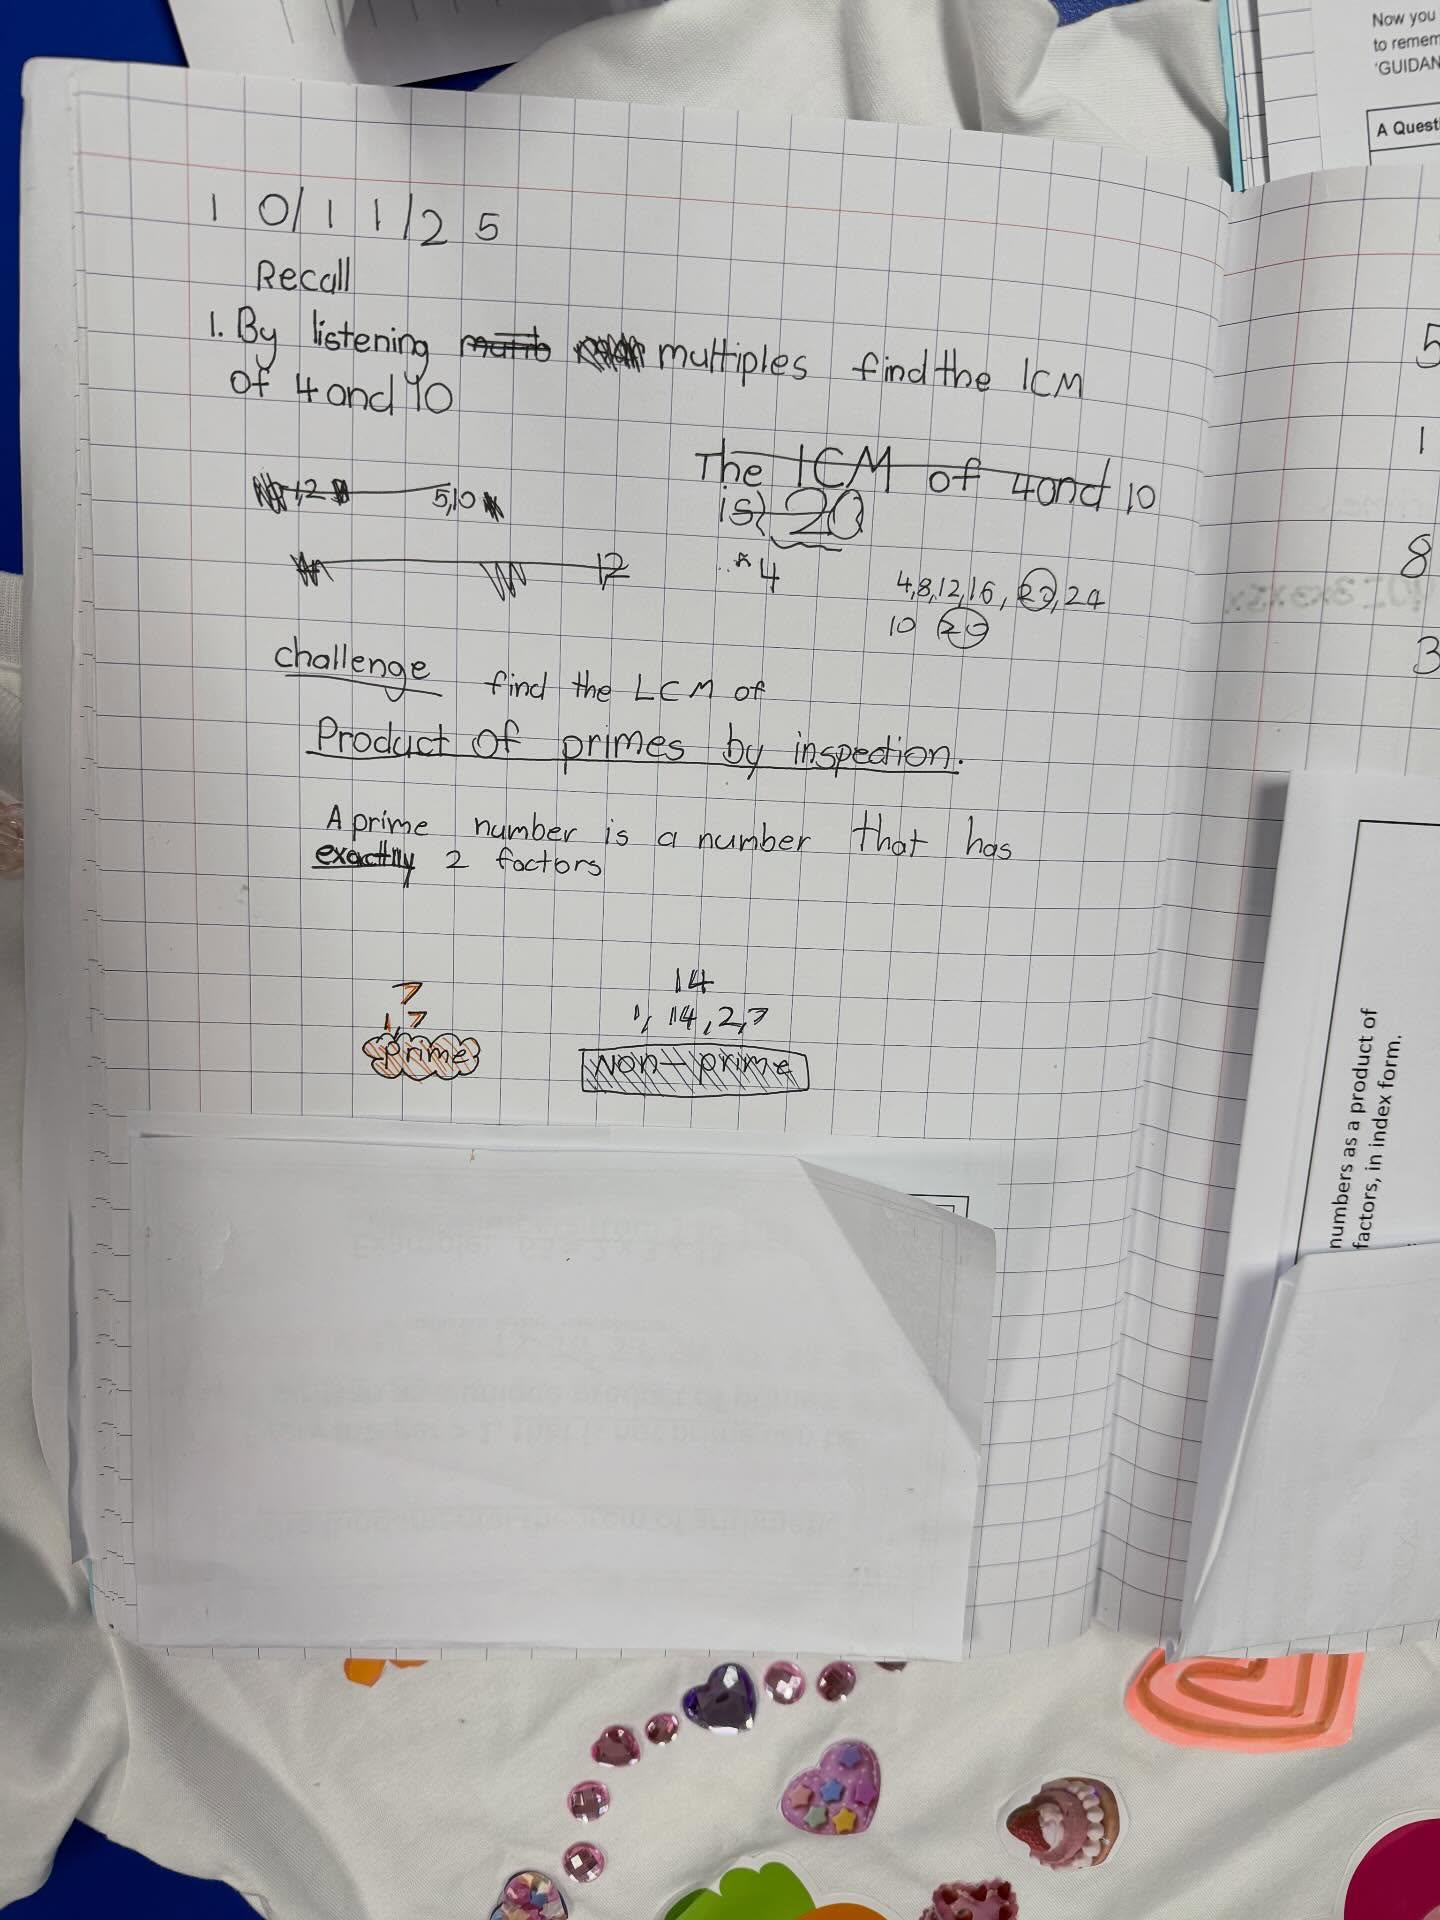 10/11/25
Recall
1. By listening multiples find the lCM
of 4 and 10
The lCM of 4 and 10
is 20
1,2
5,10
12
4
4,8,12,16,20,24
10 20
challenge find the LCM of
Product of primes by inspection.
A prime number is a number that has
exactly 2 factors
7
1,7
prime
14
1, 14, 2,7
Non-prime
Now you
to remem
'GUIDAN
A Quest
5
1
8
3
numbers as a product of
factors, in index form.